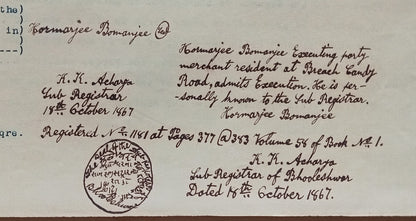 the)
in) Hormarjee Bomanjee
---)
Hormarjee Bomanjee Executing party
merchant resident at Breach Candy
Road, admits Execution. He is per-
sonally known to the Sub Registrar.
Hormarjee Bomanjee
K. K. Acharya
Sub Registrar
18th October 1867
qre. Registered No. 1181 at Pages 377 @ 383 Volume 58 of Book No. 1.
K. K. Acharya
Sub Registrar of Bhooleshwar
Dated 18th October 1867.